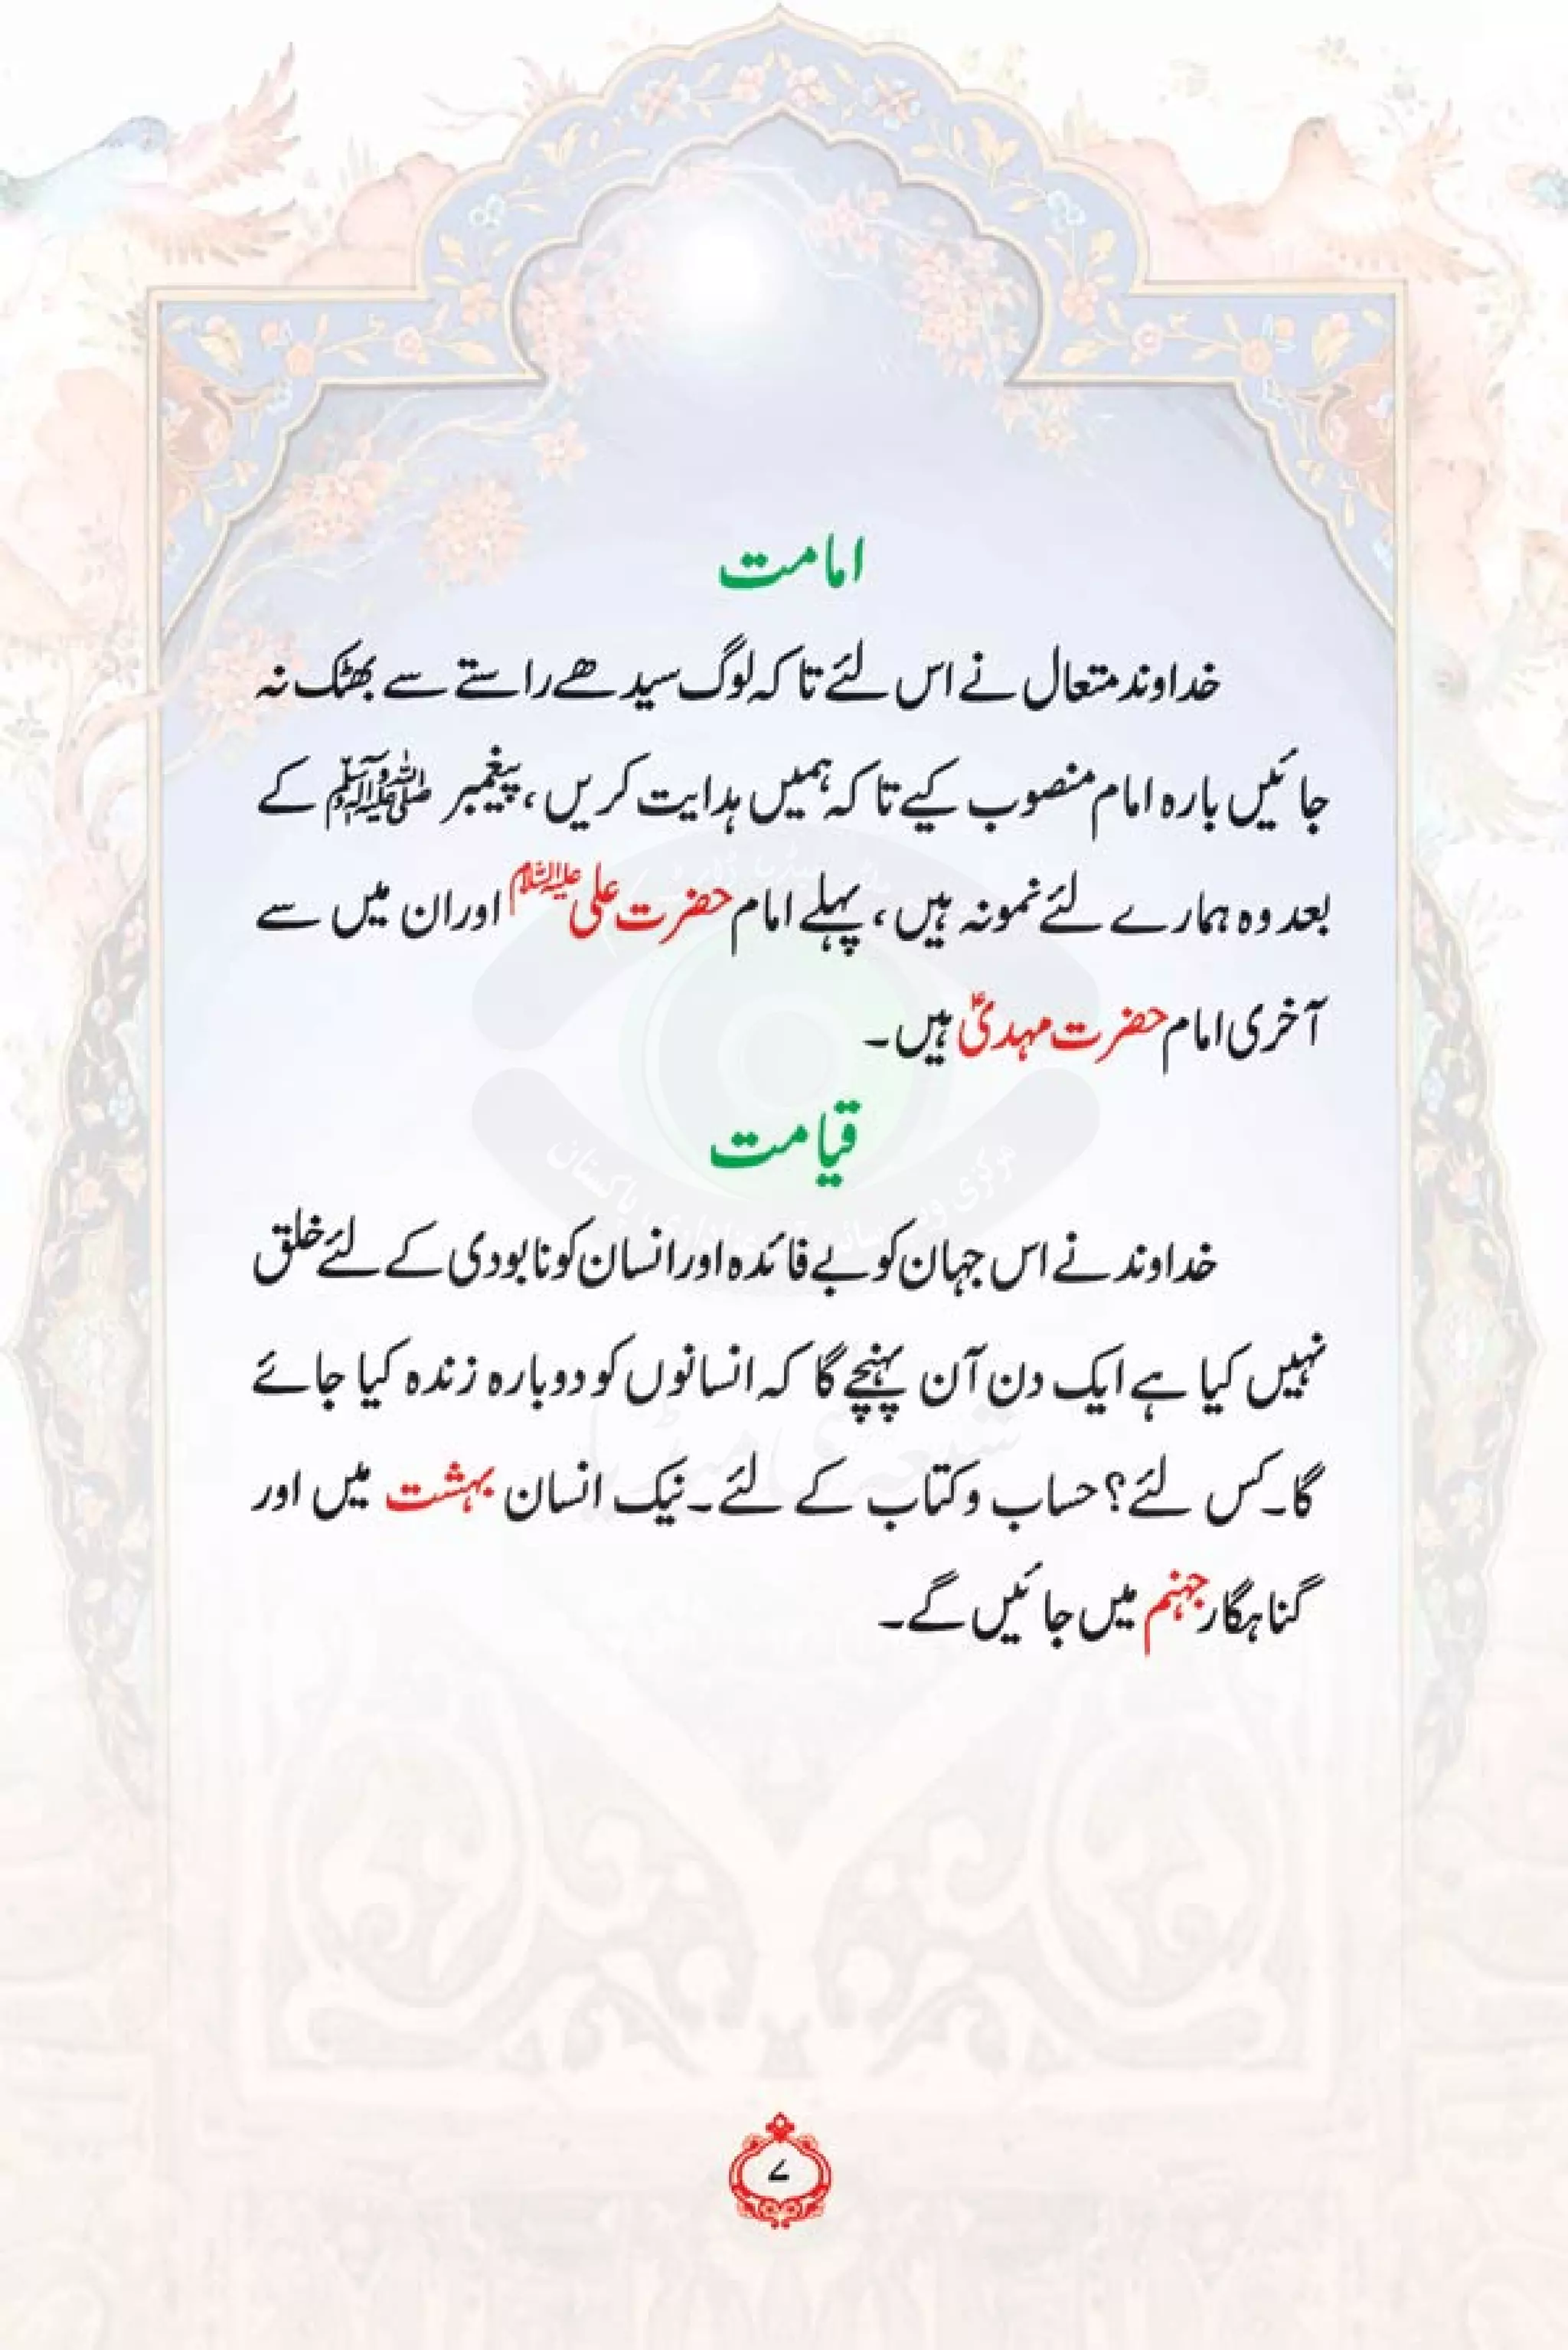 امامت
خداوند متعال نے اس لئے تا کہ لوگ سیدھے راستے سے بھٹک نہ
جائیں بارہ امام منصوب کیے تا کہ ہمیں ہدایت کریں، پیغمبر صلی اللہ علیہ وآلہ وسلم کے
بعد وہ ہمارے لئے نمونہ ہیں، پہلے امام حضرت علی علیہ السلام اور ان میں سے
آخری امام حضرت مہدیؑ ہیں۔
قیامت
خداوند نے اس جہان کو بے فائدہ اور انسان کو نابودی کے لئے خلق
نہیں کیا ہے ایک دن آن پہنچے گا کہ انسانوں کو دوبارہ زندہ کیا جائے
گا۔ کس لئے؟ حساب و کتاب کے لئے۔ نیک انسان بہشت میں اور
گناہگار جہنم میں جائیں گے۔
۷